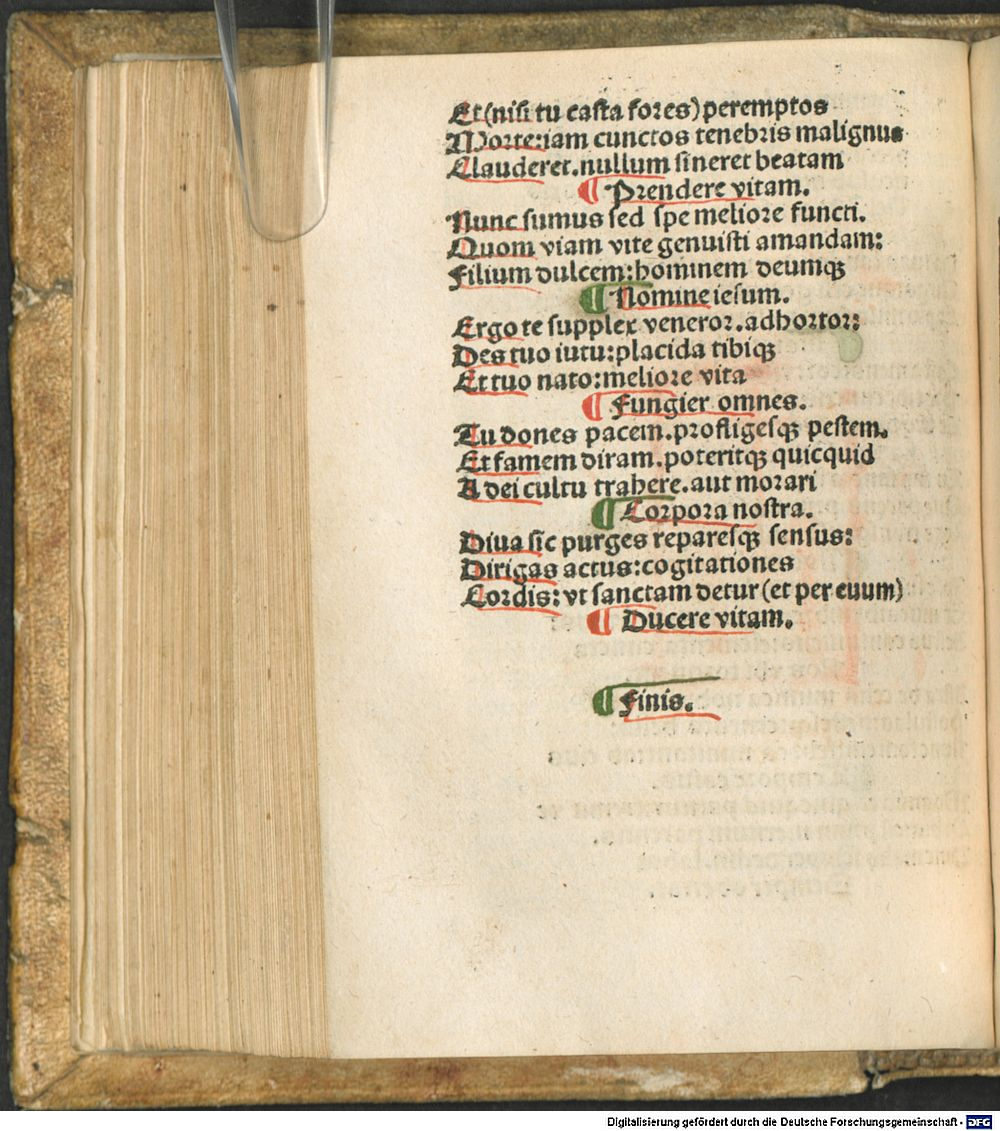 Et (nisi tu casta fores) peremptos
Morte: iam cunctos tenebris malignus
Clauderet. nullum sineret beatam
¶ Prendere vitam.
Nunc sumus sed spe meliore functi.
Quom viam vite genuisti amandam:
Filium dulcem: hominem deumqꝫ
¶ Nomine iesum.
Ergo te supplex veneror. adhortor:
Des tuo iutu: placida tibiqꝫ
Et tuo nato: meliore vita
¶ Fungier omnes.
Tu dones pacem. profligesqꝫ pestem.
Et famem diram. poteritqꝫ quicquid
A dei cultu trahere. aut morari
¶ Corpora nostra.
Diua sic purges reparesqꝫ sensus:
Dirigas actus: cogitationes
Cordis: vt sanctam detur (et per euum)
¶ Ducere vitam.
¶ Finis.
Digitalisierung gefördert durch die Deutsche Forschungsgemeinschaft - DFG